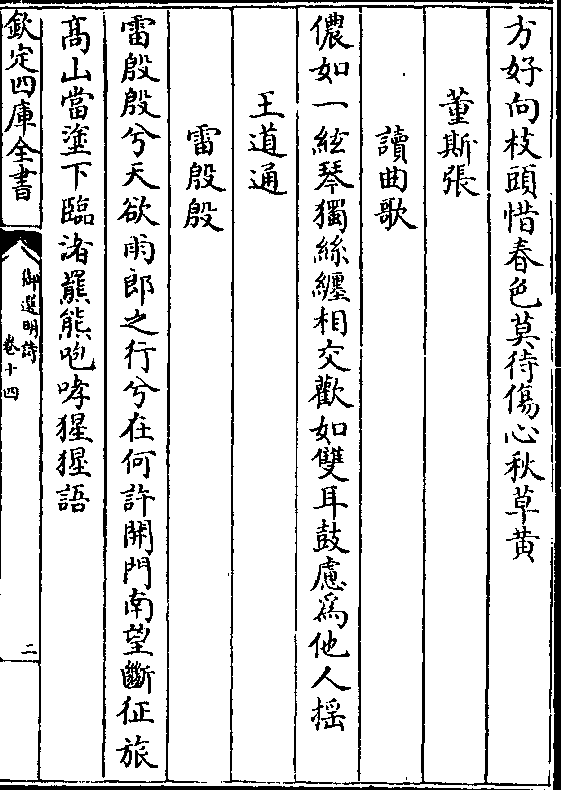 方好向枝頭惜春色莫待傷心秋草黄
董斯張
讀曲歌
儂如一絃琴獨絲纏相交歡如雙耳鼓慮為他人揺
王道通
雷殷殷
雷殷殷兮天欲雨郎之行兮在何許開門南望斷征旅
髙山當塗下臨渚羆熊咆哮猩猩語
欽定四庫全書
御選明詩
卷十四
二